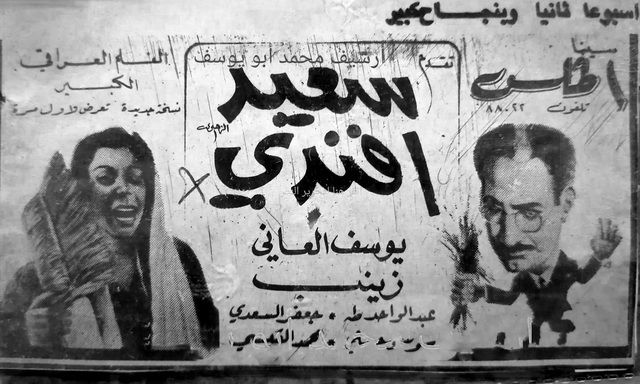 اسبوعا ثانيا وبنجاح كبير
سينما
اطلس
تلفون ٨٨٠٢٢
تقدم
ارشيف محمد ابو يوسف
سعيد
افندي
يوسف العاني
زينب
عبد الواحد طه - جعفر السعدي
الفلم العراقي
الكبير
نسخة جديدة تعرض لاول مرة